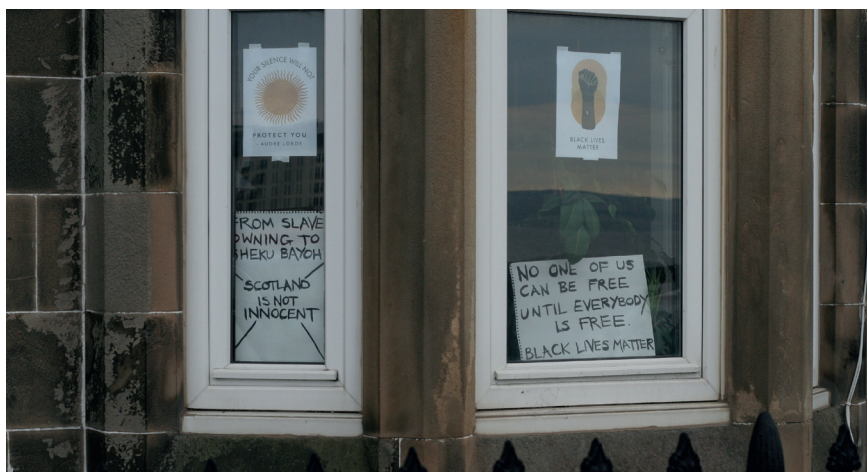 YOUR SILENCE WILL NOT
PROTECT YOU
- AUDRE LORDE
FROM SLAVE
OWNING TO
SHEKU BAYOH
SCOTLAND
IS NOT
INNOCENT
BLACK LIVES
MATTER
NO ONE OF US
CAN BE FREE
UNTIL EVERYBODY
IS FREE.
BLACK LIVES MATTER